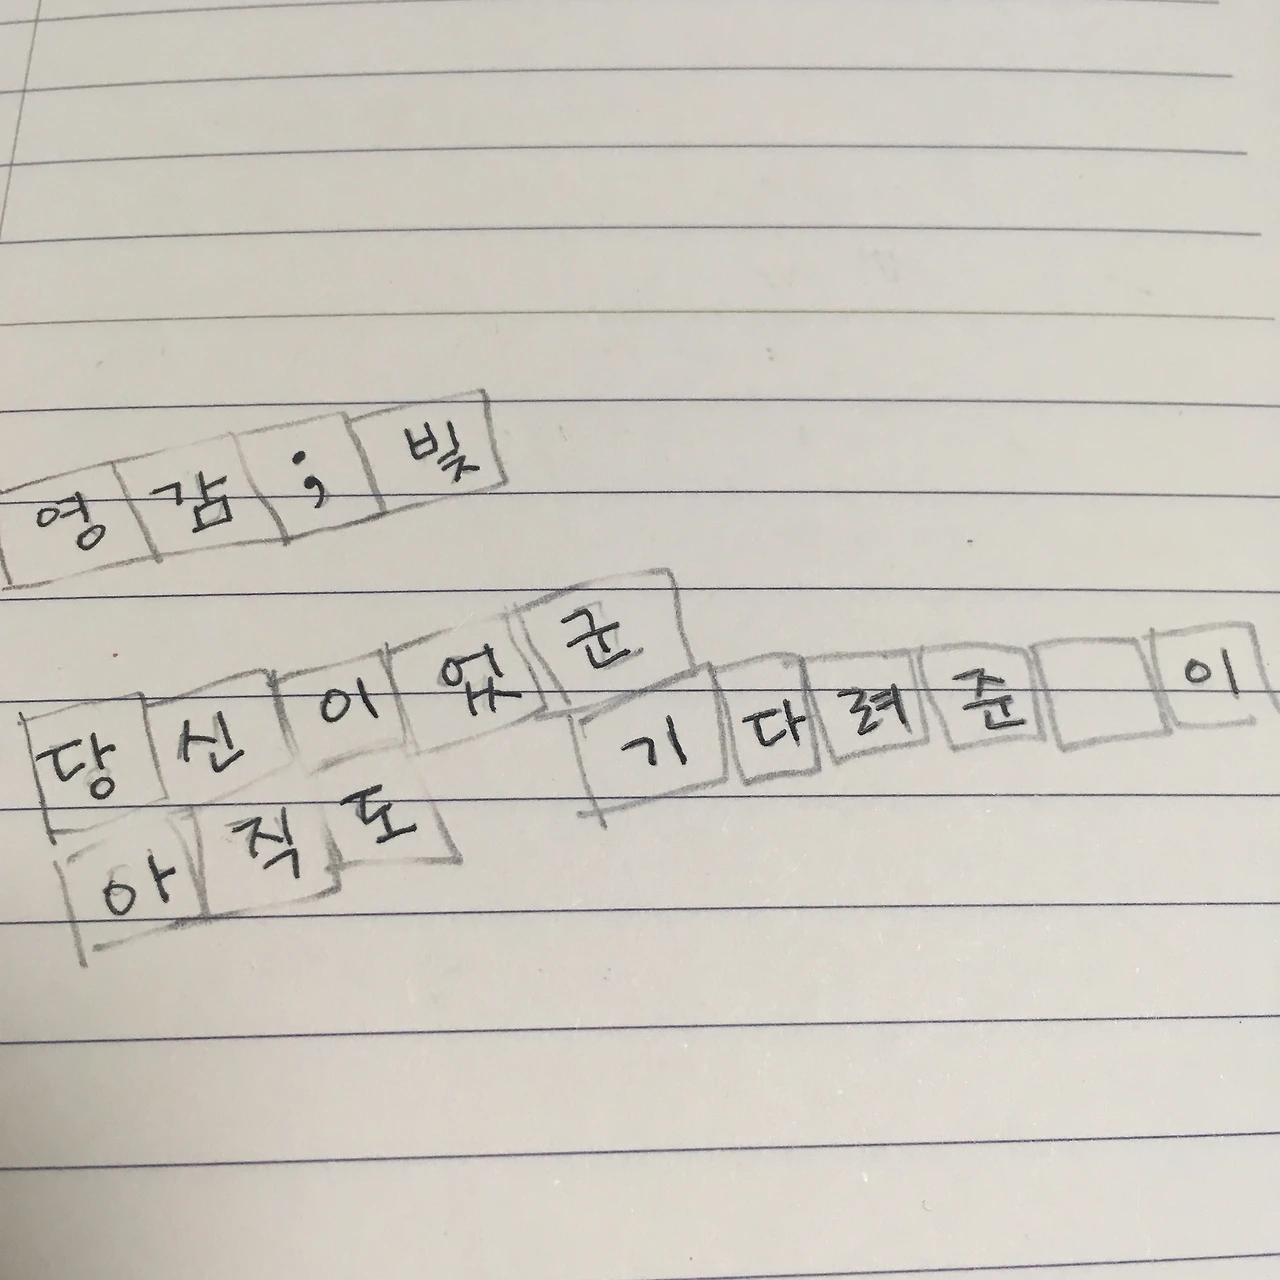 영감;빛
당신이었군
기다려준 이
아직도